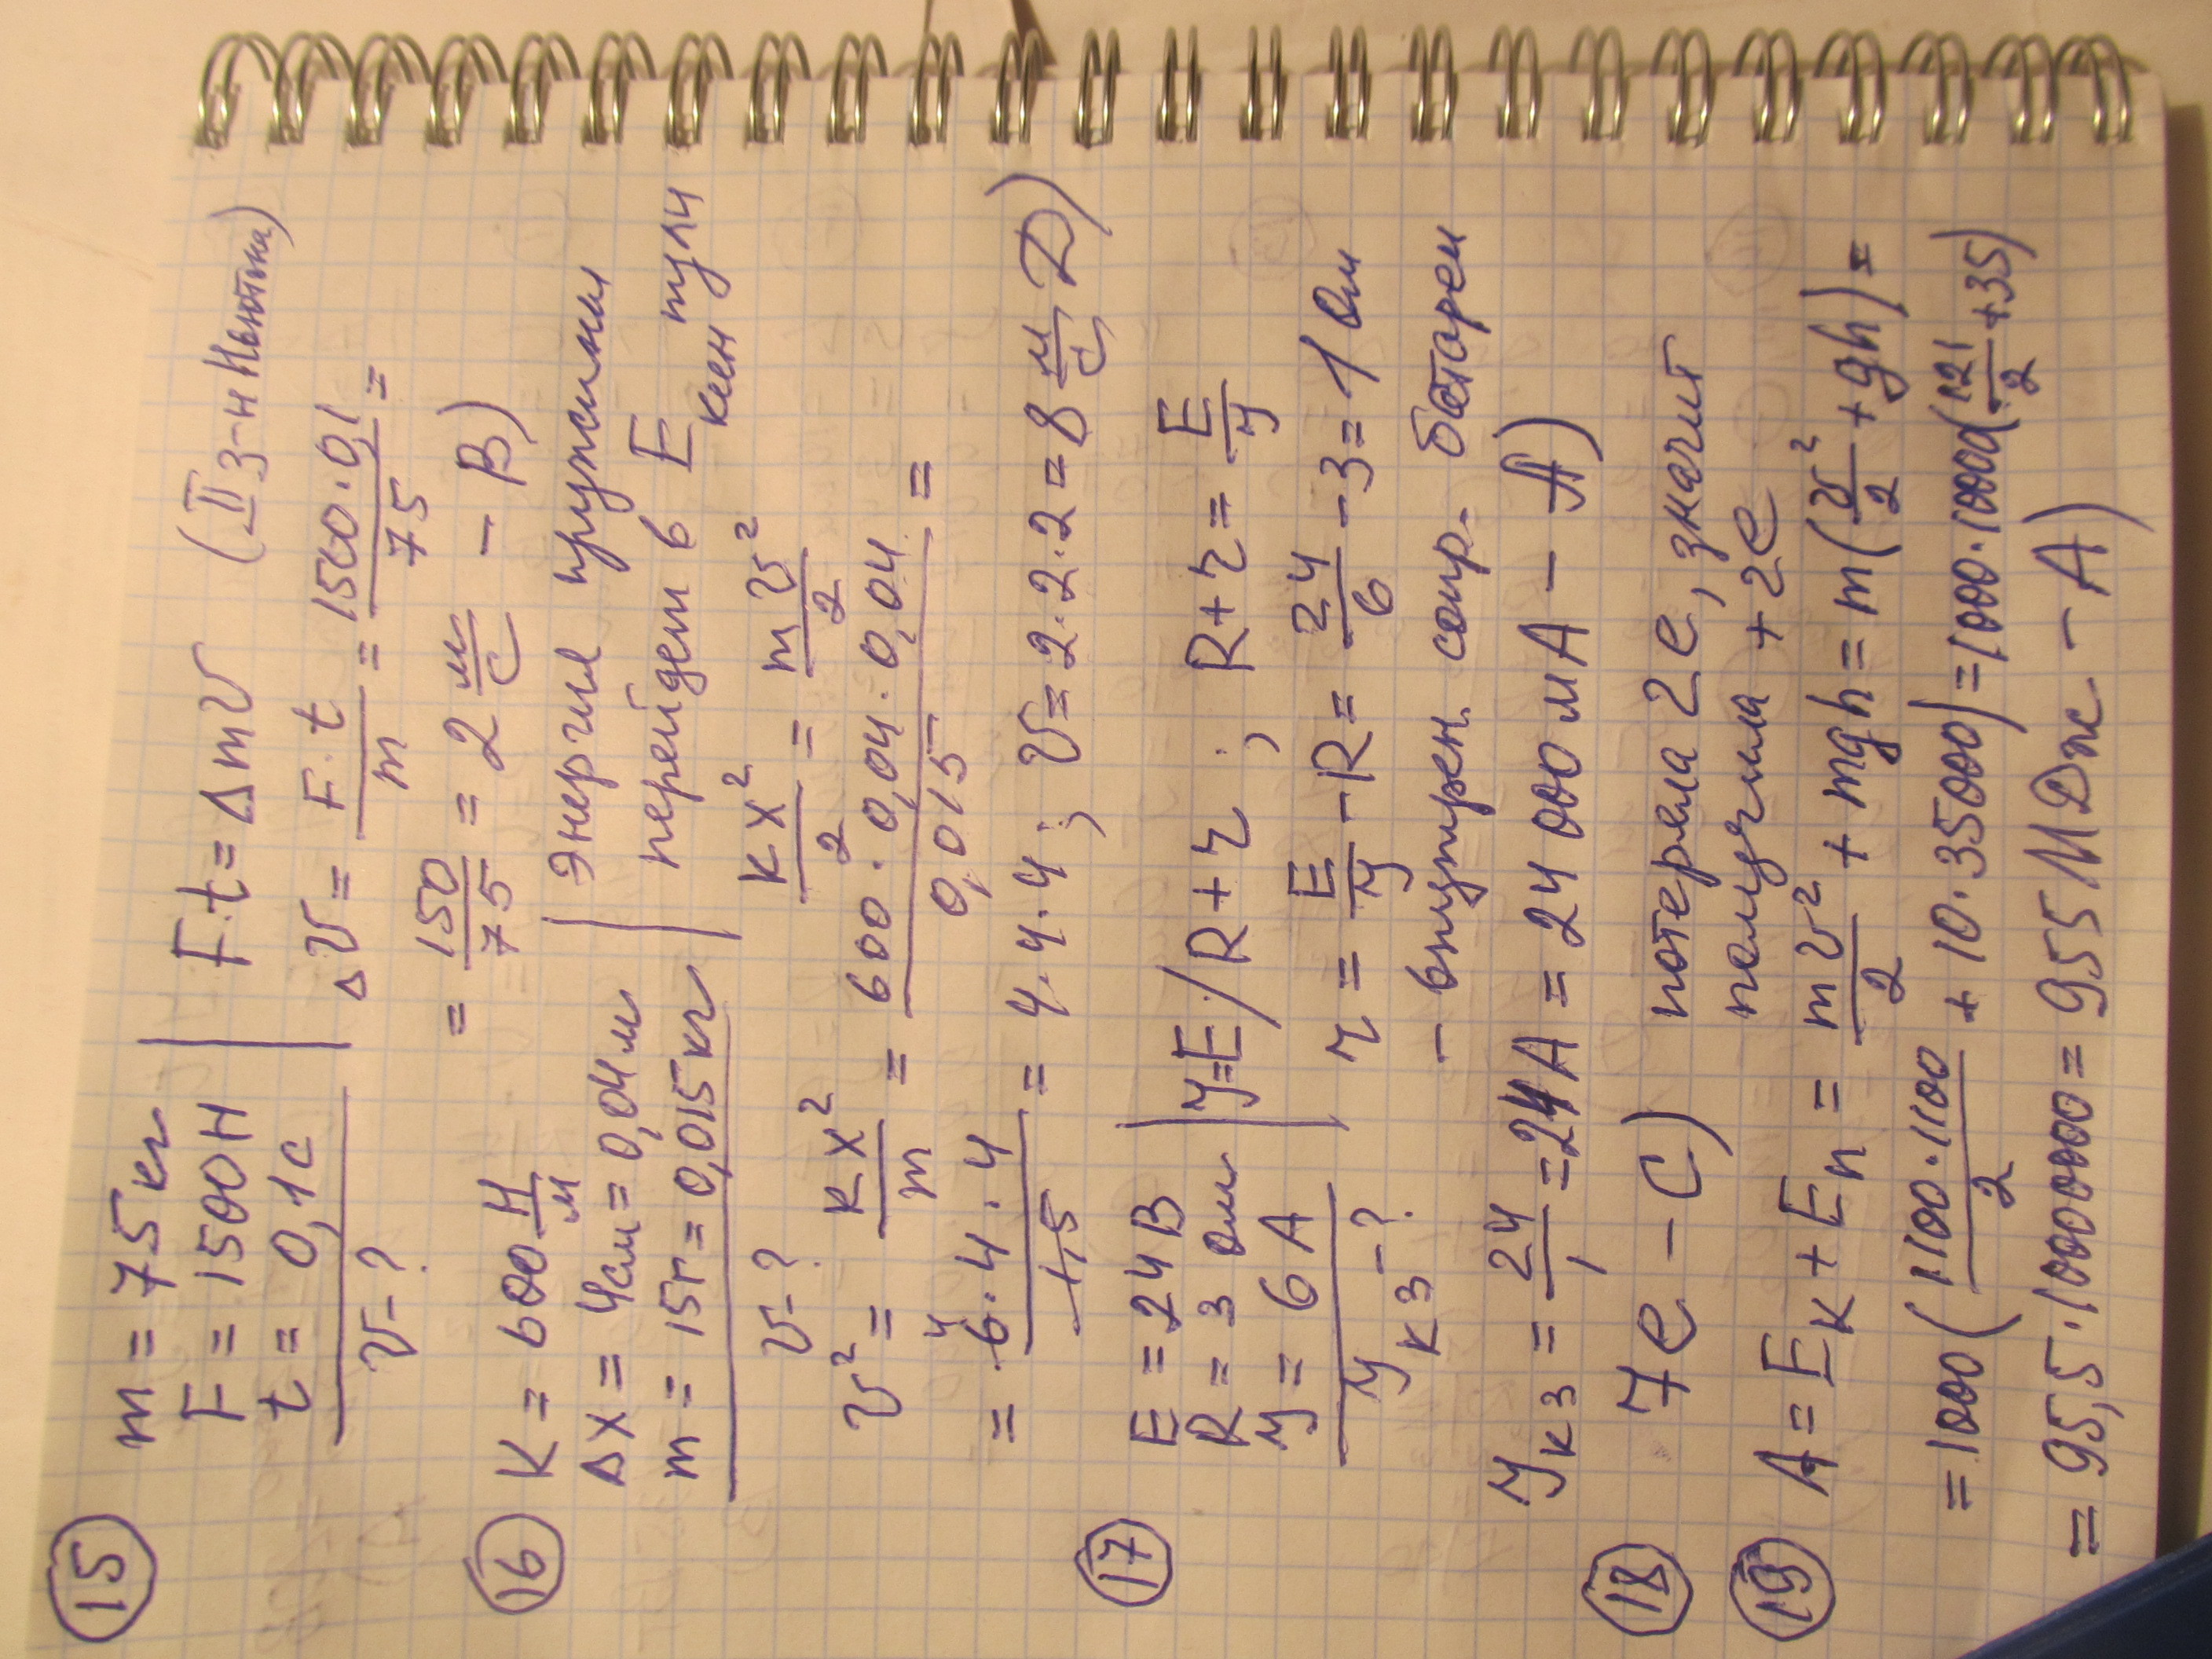 15
m = 75 кг
F = 1500 Н
t = 0,1 с
v - ?
F·t = Δmv (II з-н Ньютона)
Δv = F·t/m = 1500·0,1/75 =
= 150/75 = 2 м/с - В)
16
K = 600 Н/м
Δx = 4см = 0,04м
m = 15г = 0,015кг
v - ?
Энергия пружины
перейдет в E кин пули
кx²/2 = mv²/2
v² = кx²/m = 600·0,04·0,04/0,015 =
= 6·4·4/1,5 = 4·4·4; v = 2·2·2 = 8 м/с Д)
17
E = 24В
R = 3 Ом
У = 6 А
Укз - ?
У = E/R+r ; R+r = E/У
r = E/У - R = 24/6 - 3 = 1 Ом
- внутрен. сопр. батареи
Укз = 24/1 = 24А = 24 000 мА - А)
18
7 е - С) потеряла 2е, значит
получила +2е
19
A = Eк + Eп = mv²/2 + mgh = m(v²/2 + gh) =
= 1000(1100·1100/2 + 10·35000) = 1000·10000(121/2 + 35)
= 95,5·10000000 = 955 МДж - А)